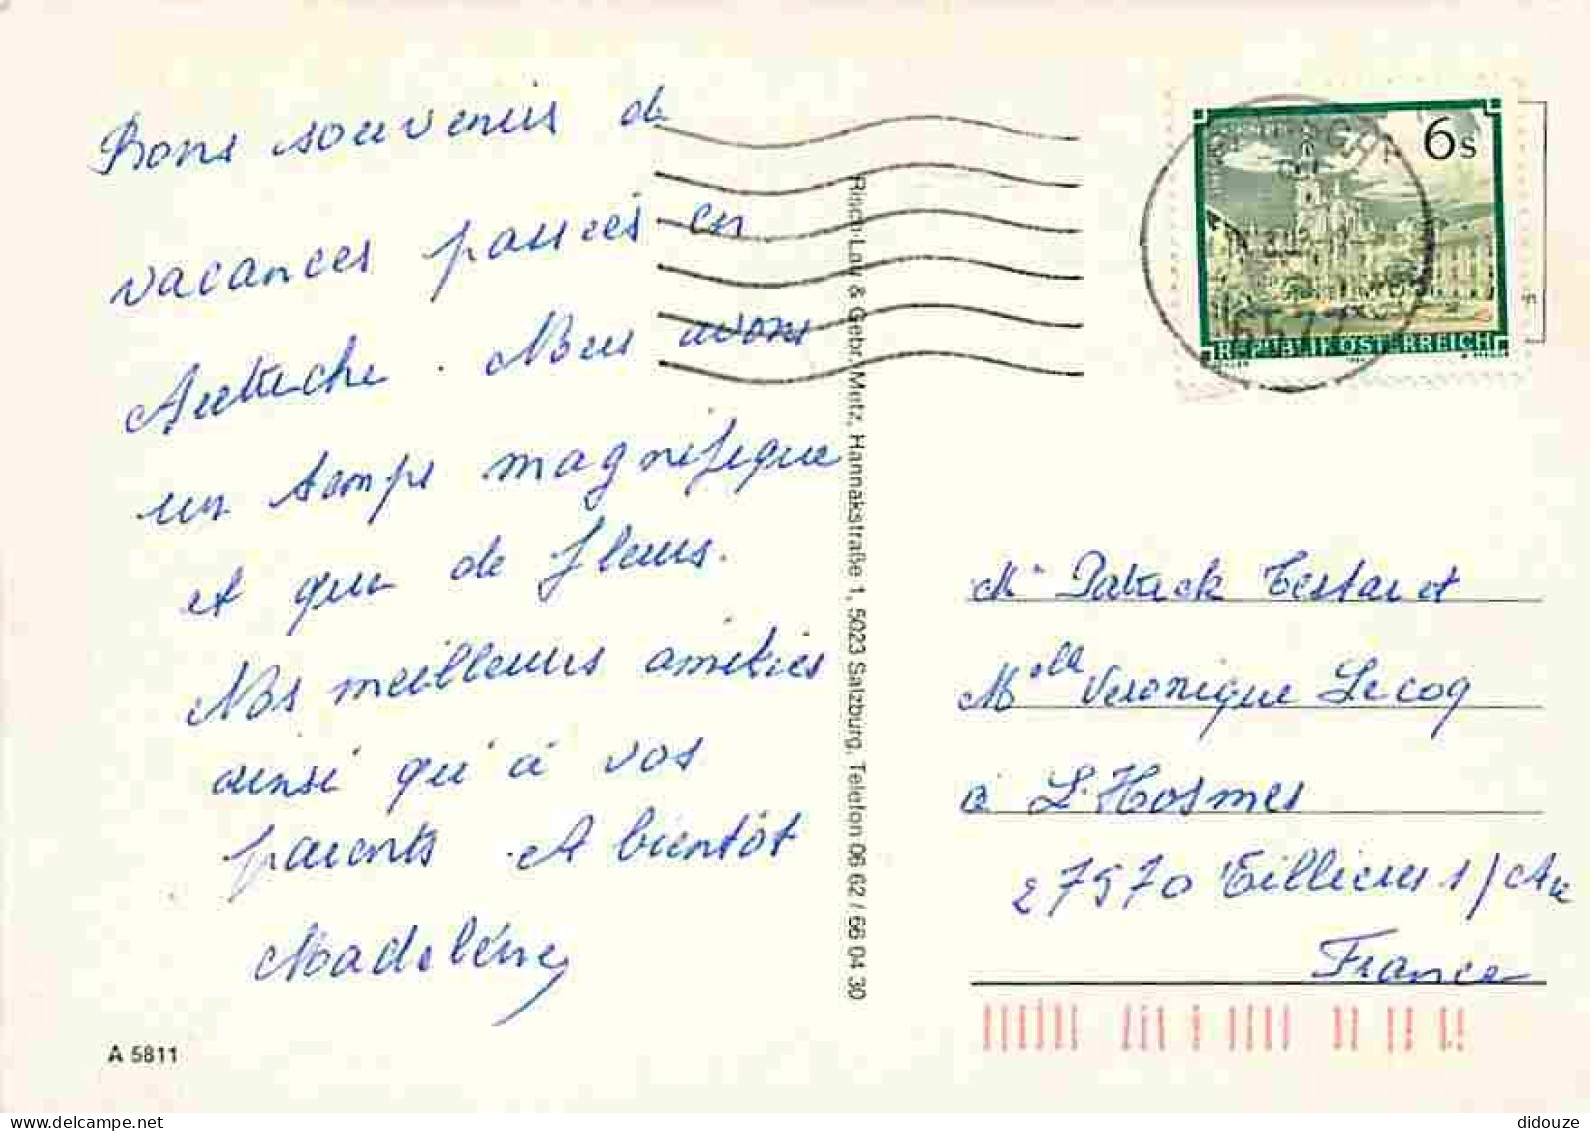 Bons souvenirs de
vacances passées en
Autriche. Nous avons
un temps magnifique
et que de fleurs.
Nos meilleurs amitiés
ainsi qu'à vos
parents. A bientôt
Madelène
A 5811
Risch-Lau & Gebr. Metz, Hannakstraße 1, 5023 Salzburg, Telefon 06 62 / 66 04 30
6s
REPUBLIK ÖSTERREICH
Mr Patrick Testaret
Melle Veronique Lecoq
à L'Hosmes
27570 Tillieres s/ Avre
France
didouze